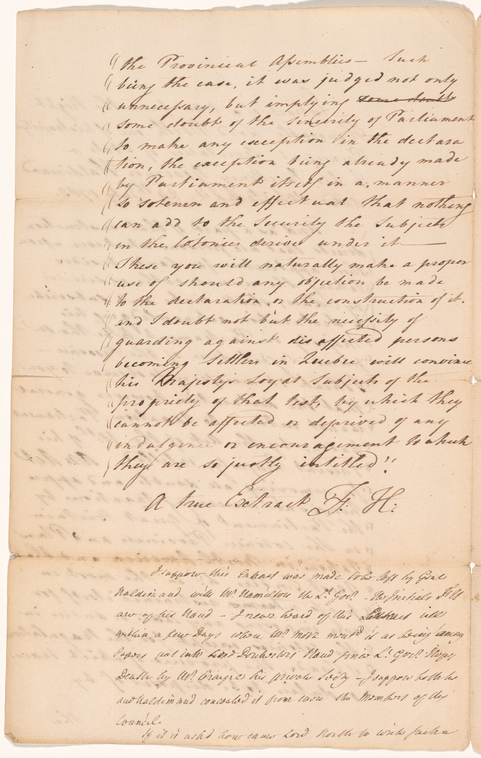 the Provincial Assemblies — Such
being the case, it was judged not only
unnecessary, but implying some doubt
some doubt of the sincerity of Parliament
to make any exception in the declara
tion, the exception being already made
by Parliament itself in a manner
so solemn and effectual that nothing
can add to the Security the Subjects
in the Colonies derive under it —
These you will naturally make a proper
use of should any objection be made
to the declaration or the construction of it.
and I doubt not but the necessity of
guarding against disaffected persons
becoming Settlers in Quebec will convince
his Majestys Loyal Subjects of the
propriety of that test, by which they
cannot be affected or deprived of any
indulgence or encouragement to which
they are so justly intitled"
A true Extract F: H:
I suppose this Extract was made to be left by Genl
Haldimand with Mr Hamilton the Lt. Govr. the Initials F H
are of his Hand — I never heard of this Extract till
within a few Days when Mr it as being among
Papers put into Lord Dorchesters Hand since Lt. Govr Hopes
Death by Mr his private Secry — I suppose both he
and Haldimand concealed it from even the Members of the
Council.
If it is ask'd how came Lord North to write such a